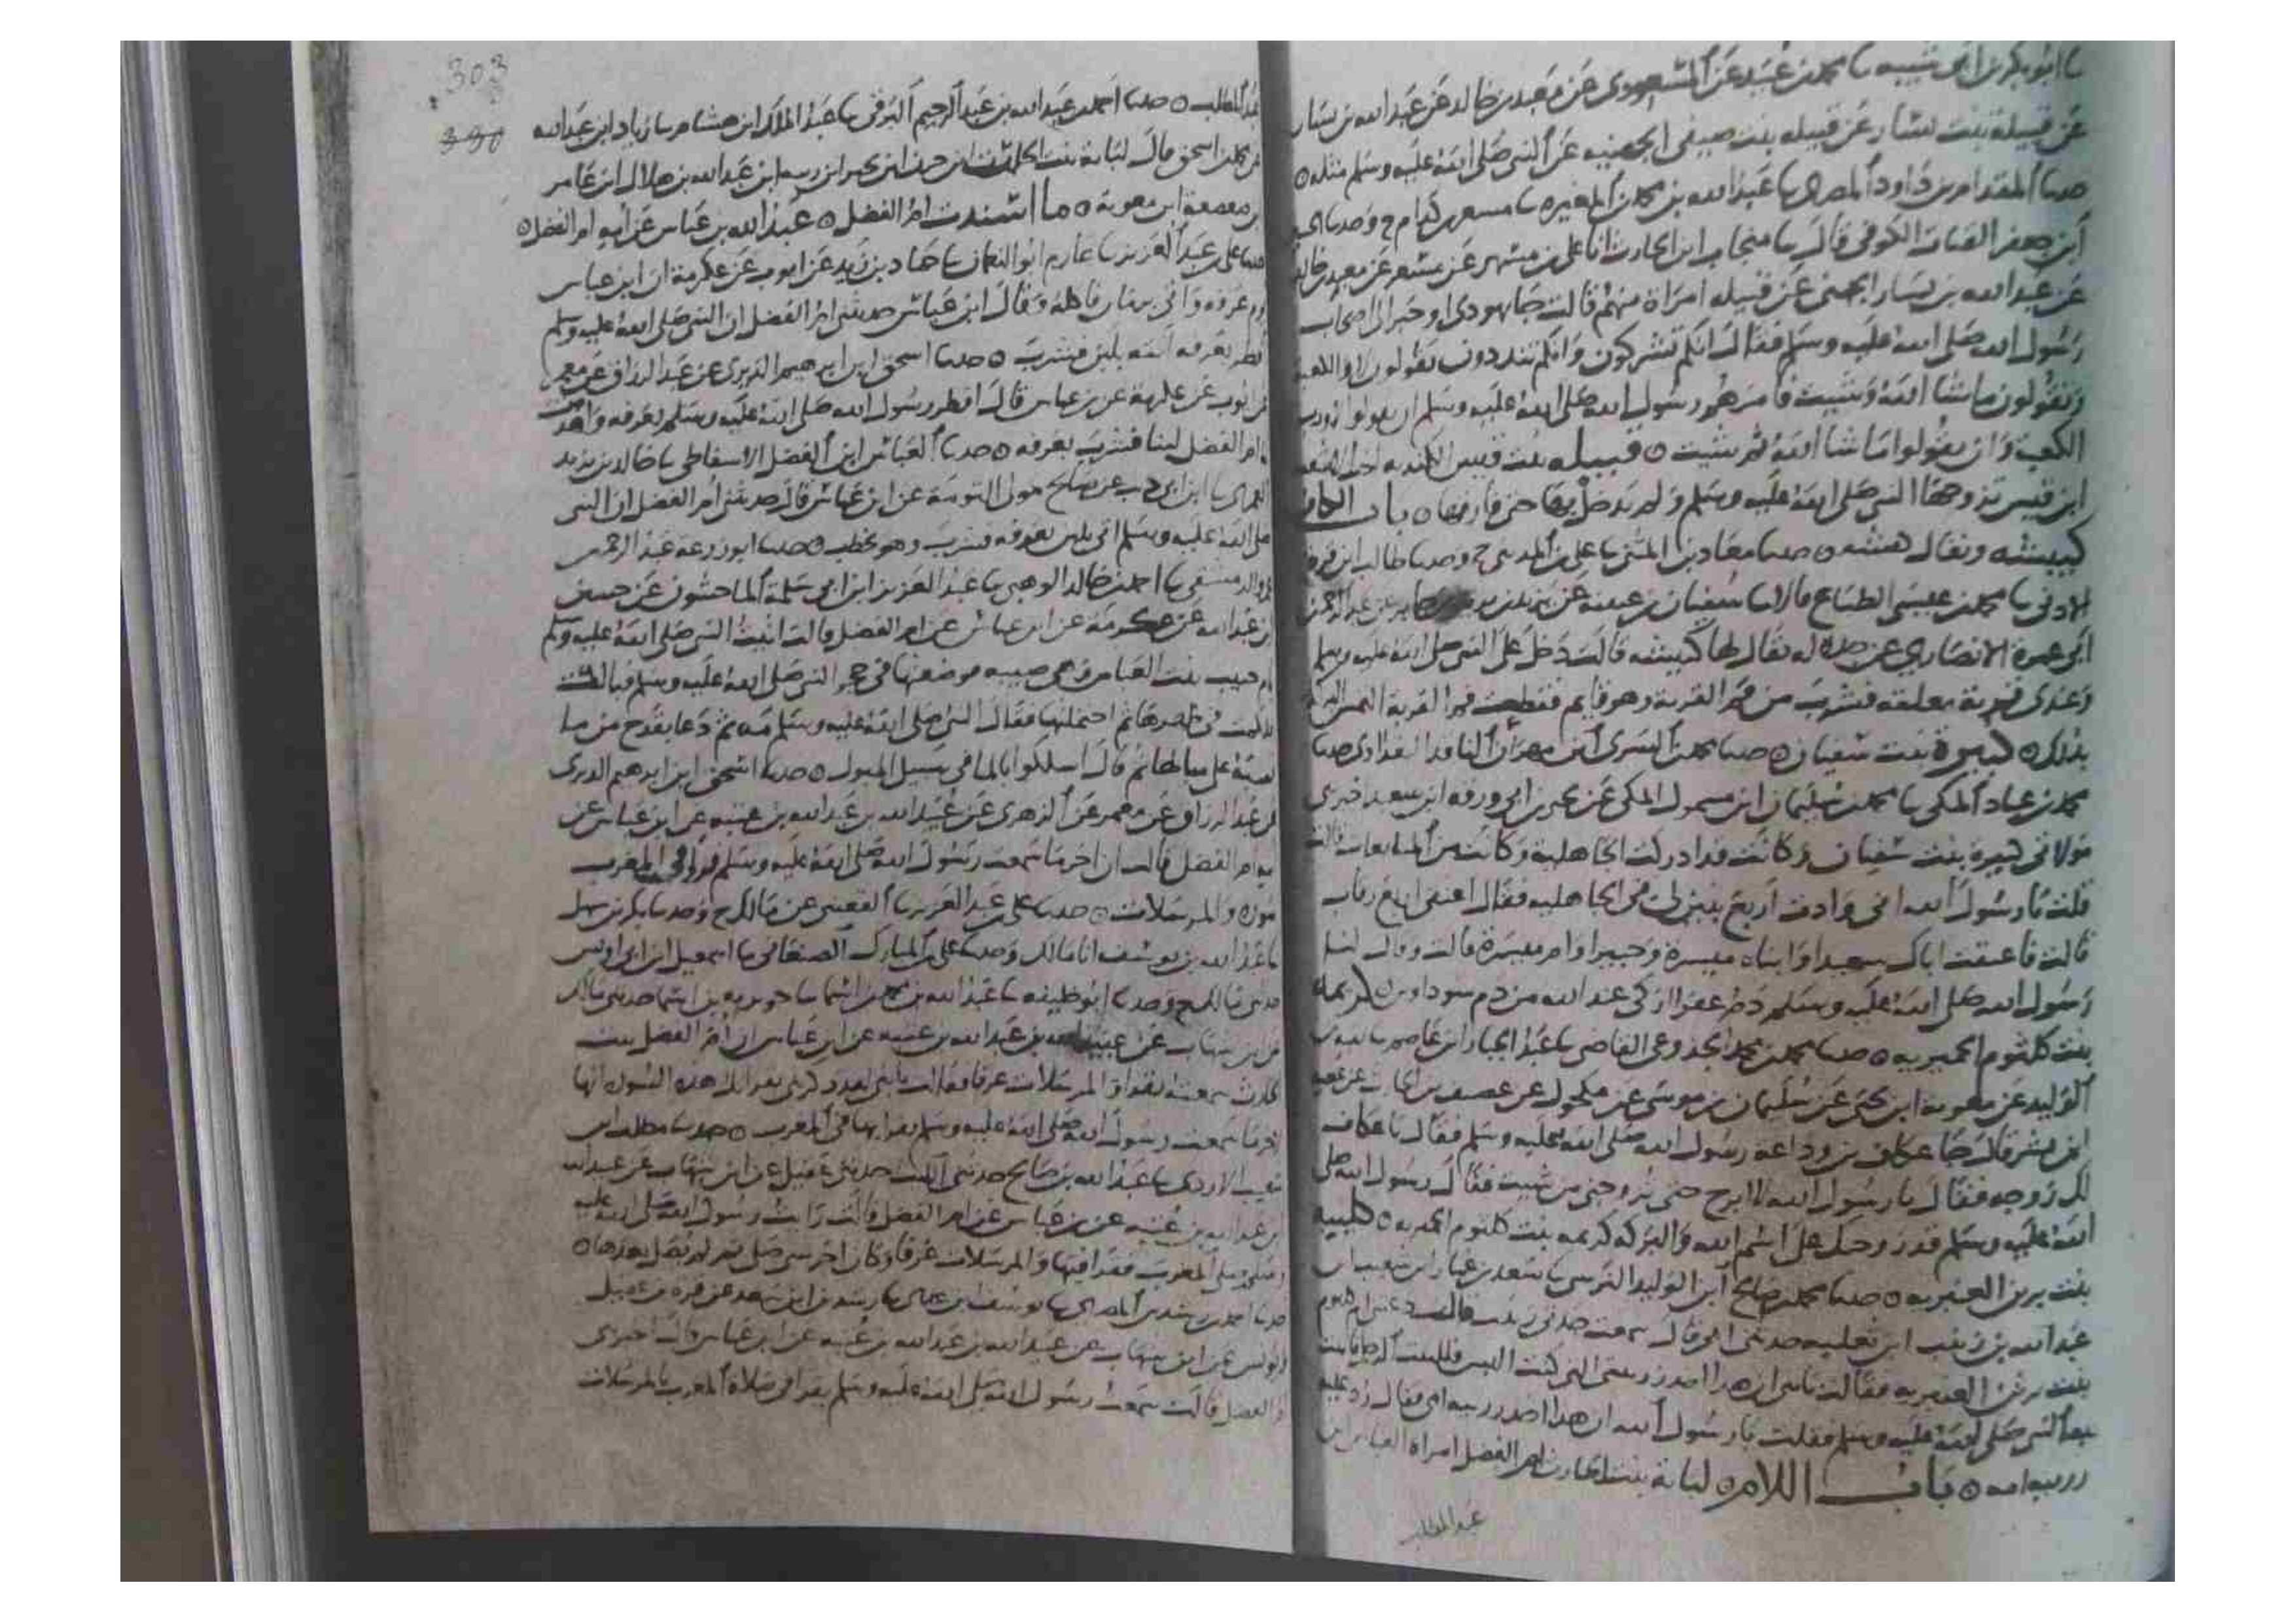 ابو بكر بن ابى شيبه محمد بن عبيد عن المسعودى عن معبد بن خالد عن عبد الله بن يسار
عن قتيلة بنت صيفى الجهنيه عن النبى صلى الله عليه وسلم مثله
حدثنا المقدام بن داود المصرى عبد الله بن محمد بن المغيره مسعر بن كدام ح وحدثنا
ابن جعفر القتات الكوفى قال منجاب ابن الحارث انا على بن مسهر عن مسعر عن معبد بن خالد
عن عبد الله بن يسار الجهنى عن قتيله امراة منهم قالت جا يهودى او حبر الى اصحاب
رسول الله صلى الله عليه وسلم فقال انكم تشركون وانكم تنددون تقولون لا والكعبة
وتقولون ما شا الله وشيت فامرهم رسول الله صلى الله عليه وسلم ان يقولوا ورب
الكعبة وان يقولوا ما شا الله ثم شيت قتيله بنت قيس الكنديه اخت الاشعث
ابن قيس تزوجها النبى صلى الله عليه وسلم ولم يدخل بها حتى فارقها باب الكاف
كبيشه ويقال معاذ بن المثنى على بن المدينى ح وحدثنا طالب ابن قرة
الادنى محمد بن عيسى الطباع قالا سفيان بن عيينه عن يزيد بن يزيد بن جابر عن عبد الرحمن
ابى عمرة الانصاري عن جدة له يقال لها كبيشه قالت دخل على النبى صلى الله عليه وسلم
وعندى قربة معلقه فشرب من فم القربة وهو قايم فقطعت فم القربة التمس البركة
بذلك كبيرة بنت سفيان حدثنا محمد بن السرى ابن مهران الناقد البغدادى حدثنا
محمد بن عباد المكى محمد بن سليمان ابن مسمول المكى عن يحيى بن ابى ورقه ابن سعيد اخبرنى
مولاتى كبيرة بنت سفيان وكانت قد ادركت الجاهلية وكانت من المبايعات قالت
قلت يا رسول الله انى وادت اربع بنين لى فى الجاهليه فقال اعتقى اربع رقاب
قالت فاعتقت اباك سعيدا وابناه ميسرة وجبيرا وام ميسرة قالت وقال
رسول الله صلى الله عليه وسلم دم عفرا ازكى عند الله من دم سوداوين كريمة
بنت كلثوم الحميريه حدثنا محمد بن محمد الجذوعى القاضى عبد الجبار ابن عاصم
الوليد عن معوية ابن يحيى عن سليمان بن موسى عن مكحول عن غضيف بن الحارث عن عطيه
ابن بسر قال جا عكاف بن وداعة رسول الله صلى الله عليه وسلم فقال يا عكاف
لك زوجه فقال يا رسول الله لا ابرح حتى تزوجنى من شيت فقال رسول الله صلى
الله عليه وسلم قد زوجتك على اسم الله والبركه كريمه بنت كلثوم الحميريه كليبه
بنت برثن العنبريه حدثنا محمد بن صالح ابن الوليد النرسى سعد بن عمار ابن شعيث ابن
عبد الله بن زبيب ابن ثعلبه حدثنى ابى قال سمعت جدى زبيب قالت دعتنى ام
بنت برثن العنبريه فقالت يا بنى ان هذا اخذ زربيتى التى كنت البس فلقيت الرجل
النبى صلى الله عليه وسلم فقلت يا رسول الله ان هذا اخذ زربيه امى فقال رد عليه
زربيه امه باب اللام لبابة بنت الحارث ام الفضل امراة العباس بن
عبد المطلب
303
390
عبد المطلب حدثنا احمد بن عبد الله بن عبد الرحيم البرقى عبد الملك ابن هشام زياد ابن عبد الله
عن محمد بن اسحق قال لبابة بنت الحارث ابن حزن ابن بجير ابن ابن عبد الله بن هلال ابن عامر
بن صعصعة ابن معوية ما اسندت ام الفضل عبد الله بن عباس عن امه ام الفضل
حدثنا على بن عبد العزيز عارم ابو النعمان حماد بن زيد عن ايوب عن عكرمة ان ابن عباس
يوم عرفه واتى برمان فاكله وقال ابن عباس حدثتنى ام الفضل ان النبى صلى الله عليه وسلم
افطر بعرفه اتته بلبن فشرب حدثنا اسحق ابن ابرهيم الدبرى عن عبد الرزاق عن معمر
عن ايوب عن عكرمة عن بن عباس قال افطر رسول الله صلى الله عليه وسلم بعرفه
ام الفضل لبنا فشرب بعرفه حدثنا العباس ابن الفضل الاسفاطى خالد بن يزيد
العمرى ابن ابى ذيب عن صالح مولى التومة عن ابن عباس قال حدثتنى ام الفضل ان النبى
صلى الله عليه وسلم اتى بلبن بعرفه فشرب وهو يخطب حدثنا ابو زرعة عبد الرحمن
الدمشقى احمد بن خالد الوهبى عبد العزيز ابن ابى سلمة الماجشون عن حسين
بن عبد الله عن عكرمة عن ابن عباس عن ام الفضل قالت اتيت النبى صلى الله عليه وسلم
ام حبيب بنت العباس وهى صبيه فوضعتها فى حجر النبى صلى الله عليه وسلم فبالت
فى ظهرها ثم احتملتها فقال النبى صلى الله عليه وسلم مه ثم دعا بقدح من ما
فصبه على مبالها ثم قال اسلكوا بالما فى سبيل البول حدثنا اسحق ابن ابرهيم الدبرى
عن عبد الرزاق عن معمر عن الزهرى عن عبيد الله بن عبد الله بن عتبه عن ابن عباس عن
امه ام الفضل قالت ان اخر ما سمعت رسول الله صلى الله عليه وسلم قرا فى المغرب
سورة والمرسلات حدثنا على بن عبد العزيز القعنبى عن مالك ح وحدثنا بكر بن سهل
عبد الله بن يوسف انا مالك وحدثنا على بن المبارك الصنعانى اسمعيل ابن ابى اويس
حدثنى مالك ح وحدثنا ابو خليفه عبد الله بن محمد بن اسما جويريه بن اسما حدثنى مالك
عن بن شهاب عن عبيد الله بن عبد الله بن عتبه عن ابن عباس ان ام الفضل بنت
الحارث سمعته يقرا والمرسلات عرفا فقالت يا بنى لقد ذكرتنى بقراتك هذه السورة انها
اخر ما سمعت رسول الله صلى الله عليه وسلم يقرا بها فى المغرب حدثنا مطلب ابن
شعيب الازدى عبد الله بن صالح حدثنى الليث حدثنى عقيل عن ابن شهاب عن عبيد الله
بن عبد الله بن عتبه عن بن عباس عن ام الفضل قالت رايت رسول الله صلى الله عليه
وسلم صلى المغرب فقرا فيها والمرسلات عرفا وكان اخر صلى ثم لم يصل بعدها
حدثنا احمد بن رشدين المصرى يوسف ابن عدى رشدين ابن سعد عن قره وعقيل
ويونس عن ابن شهاب عن عبيد الله بن عبد الله بن عتبه عن ابن عباس قال اخبرتنى
ام الفضل قالت سمعت رسول الله صلى الله عليه وسلم يقرا فى صلاة المغرب بالمرسلات